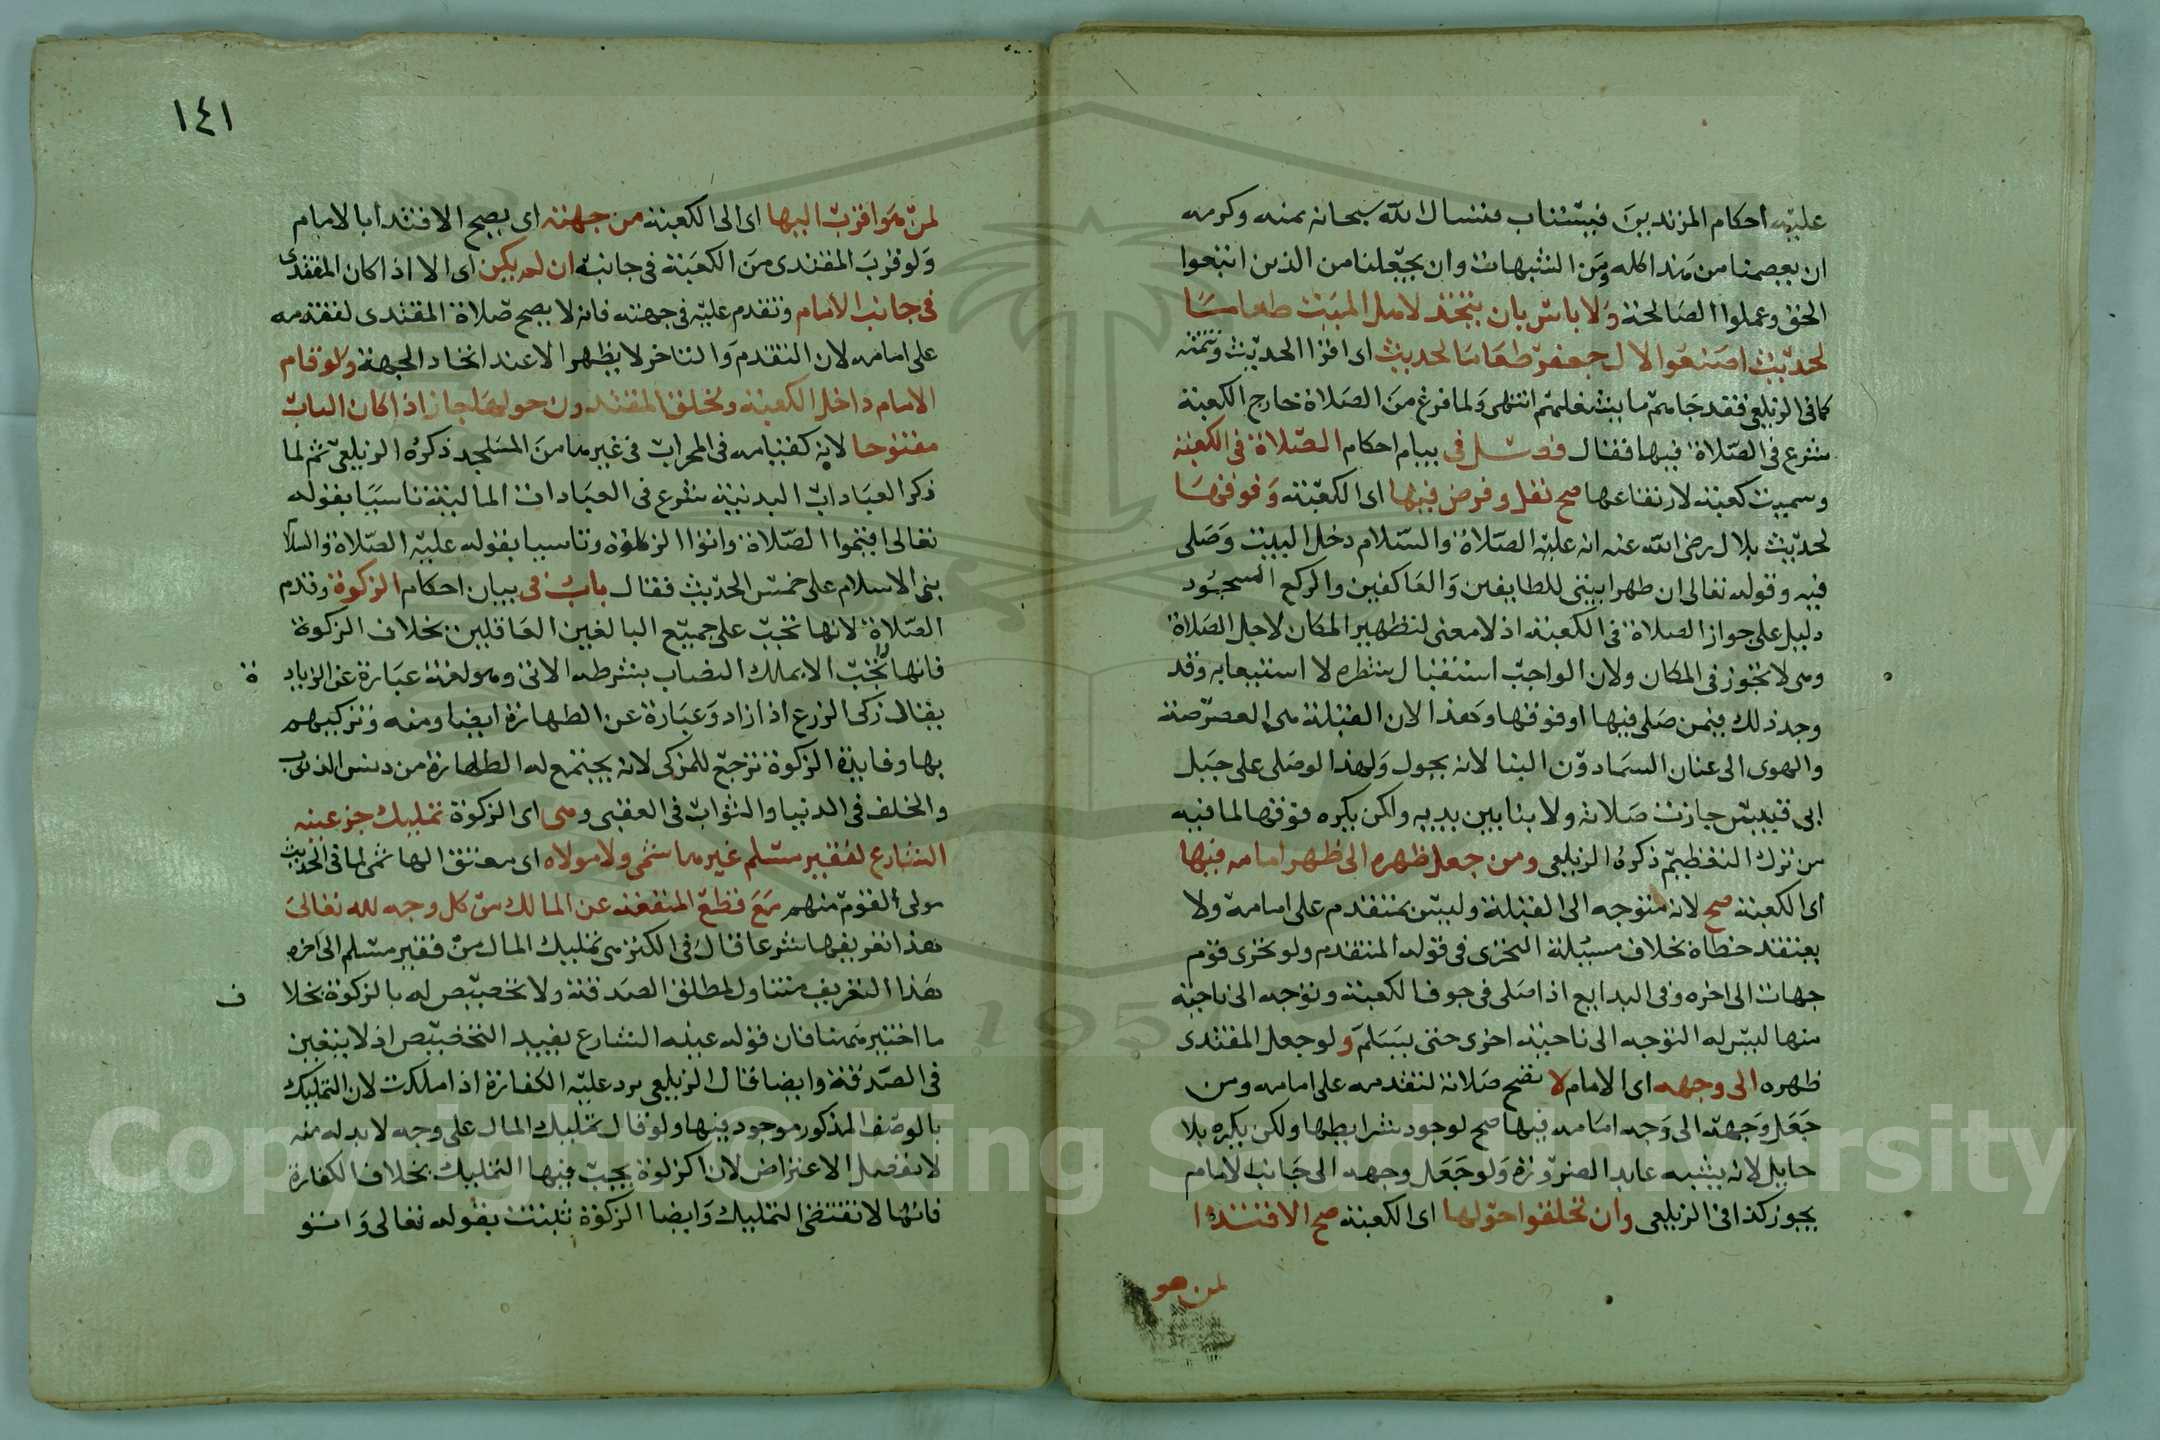 عليه احكام المرتدين فيستتاب فنسال الله سبحانه بمنه وكرمه
ان يعصمنا من هذا كله ومن الشبهات وان يجعلنا من الذين اتبعوا
الحق وعملوا الصالحة ولا باس بان يتخذ لاهل الميت طعاما
لحديث اصنعوا لال جعفر طعاما لحديث اى اقرا الحديث وتتمته
كما فى الزيلعى فقد جاهم ما يشغلهم انتهى ولما فرغ من الصلاة خارج الكعبة
شرع فى الصلاة فيها فقال فصل فى بيام احكام الصلاة فى الكعبة
وسميت كعبة لارتفاعها صح نفل وفرض فيها اى الكعبة وفوقها
لحديث بلال رضى الله عنه انه عليه الصلاة والسلام دخل البيت وصلى
فيه وقوله تعالى ان طهرا بيتى للطايفين والعاكفين والركع السجود
دليل على جواز الصلاة فى الكعبة اذ لا معنى لتطهير المكان لاجل الصلاة
وهى لا تجوز فى المكان ولان الواجب استقبال شطره لا استيعابه وقد
وجد ذلك فيمن صلى فيها او فوقها وهذا لان القبلة هى العصرصة
والهوى الى عنان السما دون البنا لانه يحول ولهذا لو صلى على جبل
ابى قبيس جازت صلاته ولا بنا بين يديه ولكن يكره فوقها لما فيه
من ترك التعظيم ذكره الزيلعى ومن جعل ظهره الى ظهر امامه فيها
اى الكعبة صح لانه متوجه الى القبلة وليس بمتقدم على امامه ولا
يعتقد خطاه بخلاف مسئلة التحرى فى قوله المتقدم ولو تحرى قوم
جهات الى اخره وفى البدايع اذا صلى فى جوف الكعبة وتوجه الى ناحية
منها ليس له التوجه الى ناحية اخرى حتى يسلم ولو جعل المقتدى
ظهره الى وجهه اى الامام لا تصح صلاته لتقدمه على امامه ومن
جعل وجهه الى وجه امامه فيها صح لوجود شرايطها ولكن يكره بلا
حايل لانه يشبه عابد الصورة ولو جعل وجهه الى جانب الامام
يجوز كذا فى الزيلعى وان تحلقوا حولها اى الكعبة صح الاقتدا
لمن هو
١٤١
لمن هو اقرب اليها اى الى الكعبة من جهته اى يصح الاقتدا بالامام
ولو قرب المقتدى من الكعبة فى جانبه ان لم يكن اى الا اذا كان المقتدى
فى جانب الامام وتقدم عليه فى جهته فانه لا يصح صلاة المقتدى لتقدمه
على امامه لان التقدم والتاخر لا يظهر الا عند اتحاد الجهة ولو قام
الامام داخل الكعبة وتحلق المقتدون حولها جاز اذا كان الباب
مفتوحا لانه كقيامه فى المحراب فى غيرها من المساجد ذكره الزيلعى ثم لما
ذكر العبادات البدنية شرع فى العبادات المالية تاسيا بقوله
تعالى اقيموا الصلاة واتوا الزكوة وتاسيا بقوله عليه الصلاة والسلام
بنى الاسلام على خمس الحديث فقال باب فى بيان احكام الزكوة وقدم
الصلاة لانها تجب على جميع البالغين العاقلين بخلاف الزكوة
فانها لا تجب الا بملك النصاب بشرطه الاتى وهو لغة عبارة عن الزيادة
يقال زكى الزرع اذا زاد وعبارة عن الطهارة ايضا ومنه وتزكيهم
بها وفايدة الزكوة ترجع للمزكى لانه يجتمع له الطهارة من دنس الذنوب
والخلف فى الدنيا والثواب فى العقبى وهى اى الزكوة تمليك جز عينه
الشارع لفقير مسلم غير هاشمى ولا مولاه اى معتق الهاشمى لما فى الحديث
مولى القوم منهم مع قطع المنفعة عن المالك من كل وجه لله تعالى
هذا تعريفها شرعا قال فى الكنز هى تمليك المال من فقير مسلم الى اخره
هذا التعريف متناول لمطلق الصدقة ولا تخصيص له بالزكوة بخلاف
ما اختير هنا فان قوله عينه الشارع يفيد التخصيص اذ لا يتعين
فى الصدقة وايضا قال الزيلعى يرد عليه الكفارة اذا ملكت لان التمليك
بالوصف المذكور موجود فيها ولو قال تمليك المال على وجه لا بد له منه
لانفصل الاعتراض لان الزكوة يجب فيها التمليك بخلاف الكفارة
فانها لا تقتضى التمليك وايضا الزكوة ثبتت بقوله تعالى واتو
Copyright © King Saud University
1957